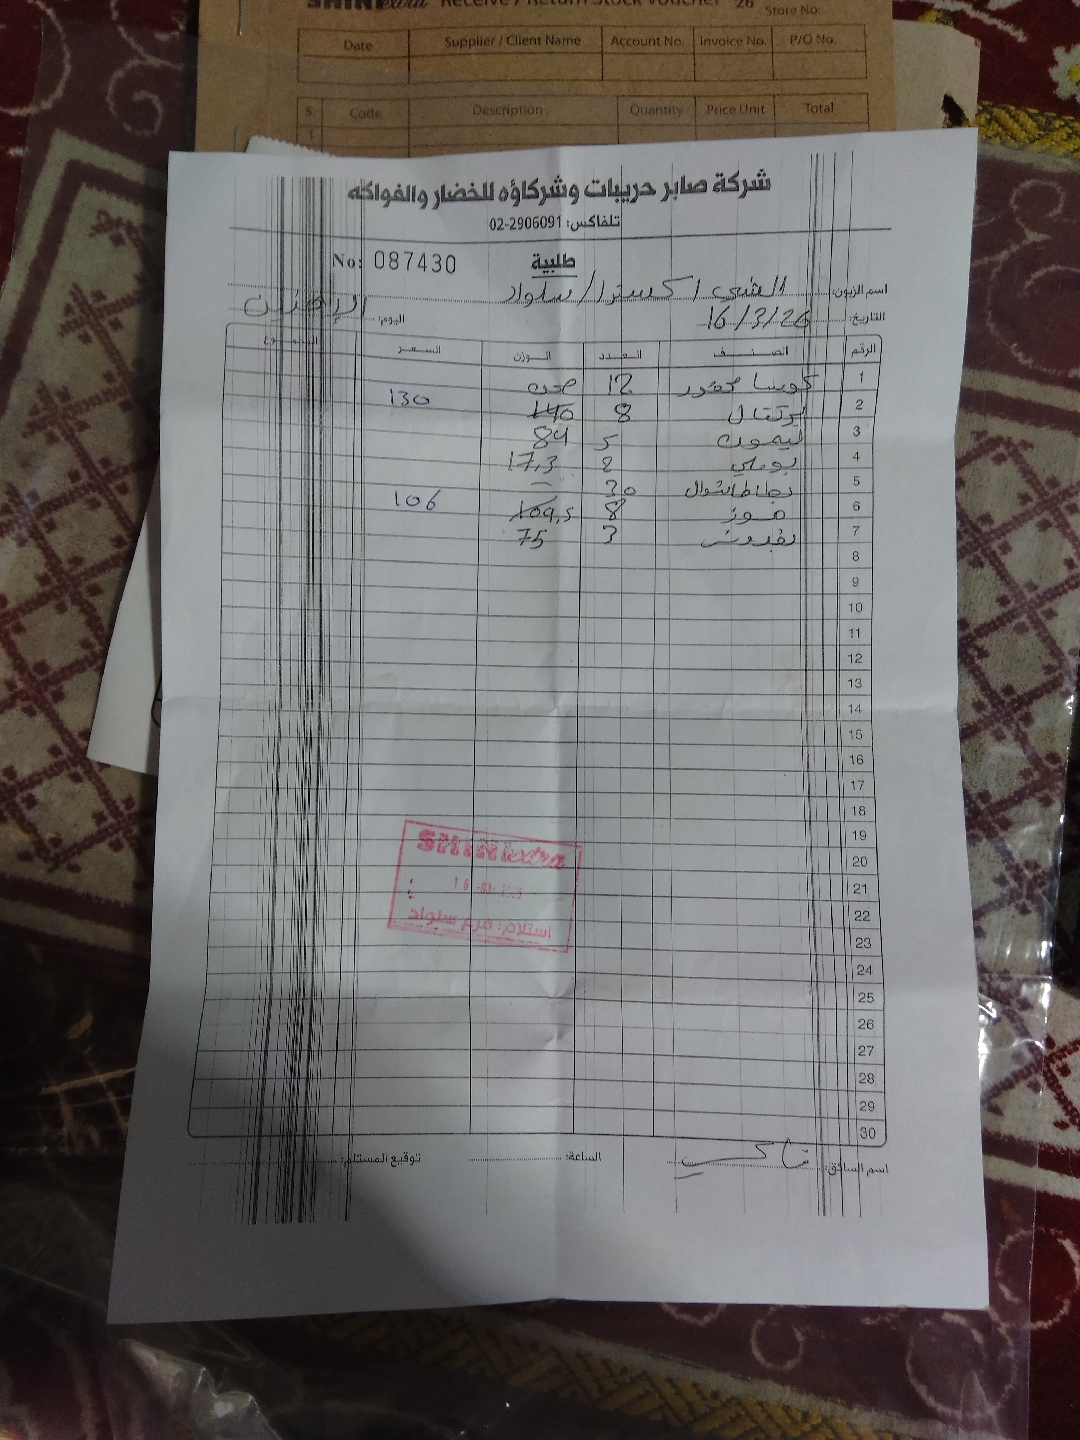 SHINI extra Receive / Return Stock Voucher 26
Store No:
Date Supplier / Client Name Account No. Invoice No. P/O No.
S. Code Description Quantity Price Unit Total
1
شركة صابر حريبات وشركاؤه للخضار والفواكه
تلفاكس: 02-2906091
طلبية
No: 087430
اسم الزبون: الشني اكسترا / سلواد
التاريخ: 16/3/26 اليوم: الإثنين
الرقم الصنف العدد الوزن السعر
1 كوسا محفور 12 صحن
2 برتقال 8 140 130
3 ليمون 5 84
4 بوملي 2 17.3
5 بطاطا شوال 30 -
6 موز 8 109.5 106
7 3 75
8
9
10
11
12
13
14
15
16
17
18
19
20
21
22
23
24
25
26
27
28
29
30
SHINI extra
استلام: فرع سلواد
اسم السائق: الساعة: توقيع المستلم: